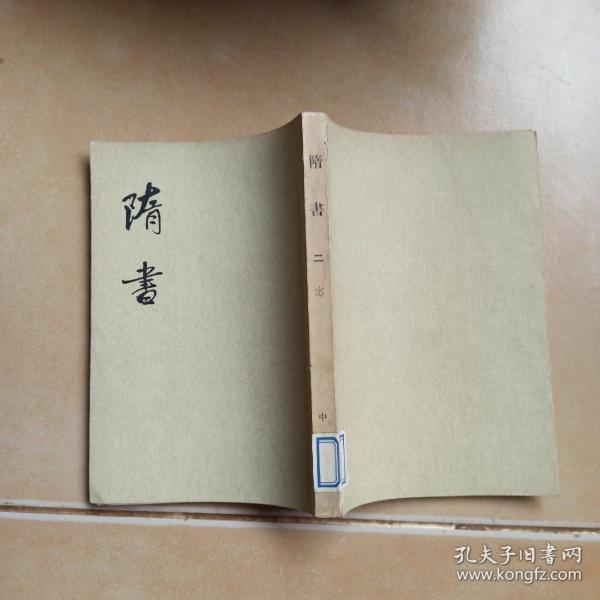 隋書
隋書
二
志
中
孔夫子旧書网
www.kongfz.com